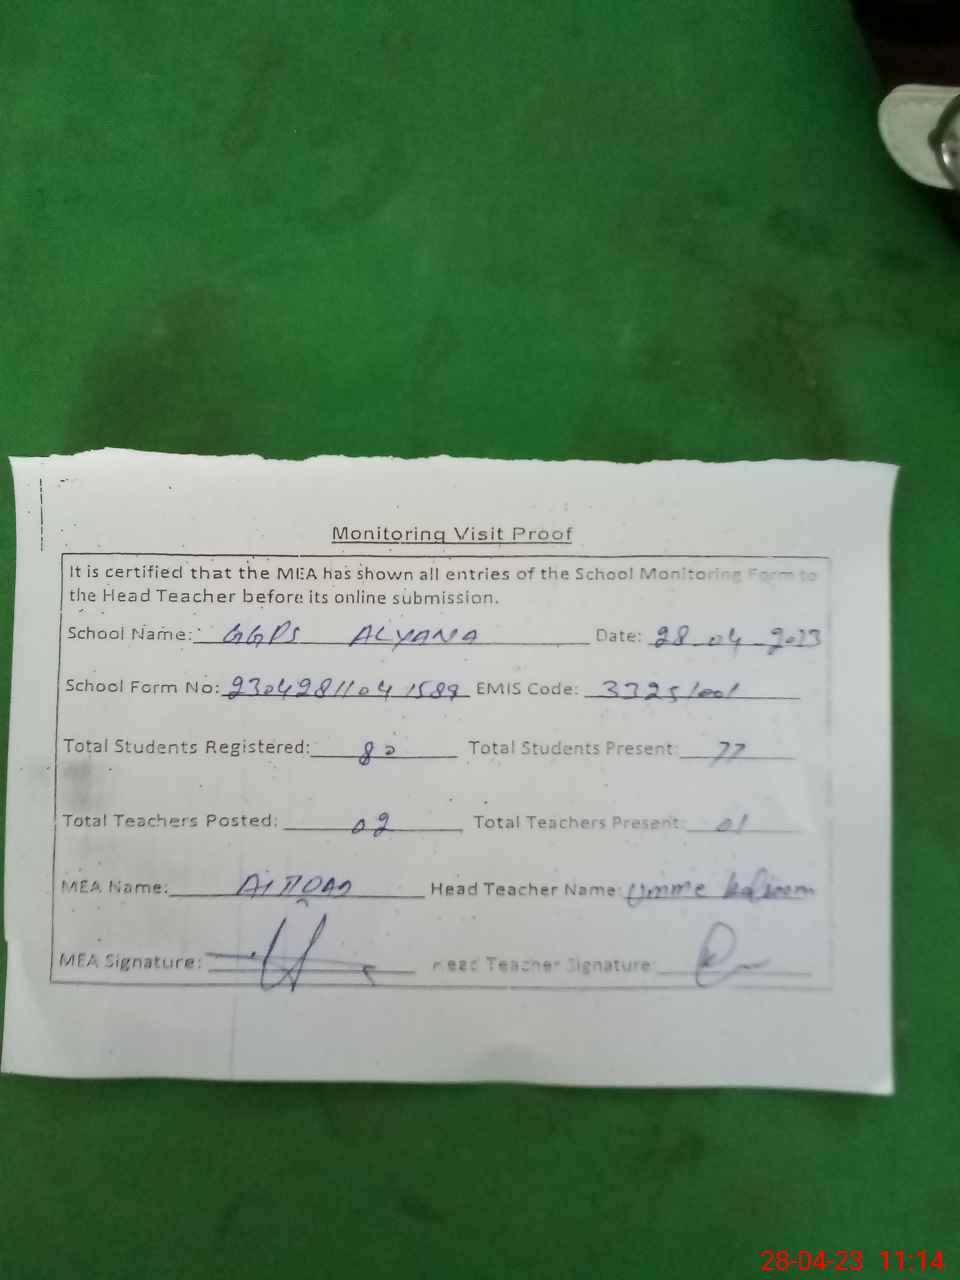 Monitoring Visit Proof
It is certified that the MEA has shown all entries of the School Monitoring Form to
the Head Teacher before its online submission.
School Name: GGPS ALYANA Date: 28-04-2023
School Form No: EMIS Code: 33251001
Total Students Registered: 80 Total Students Present: 77
Total Teachers Posted: 02 Total Teachers Present: 01
MEA Name: Head Teacher Name: Umme kalsoom
MEA Signature: Head Teacher Signature:
28-04-23 11:14